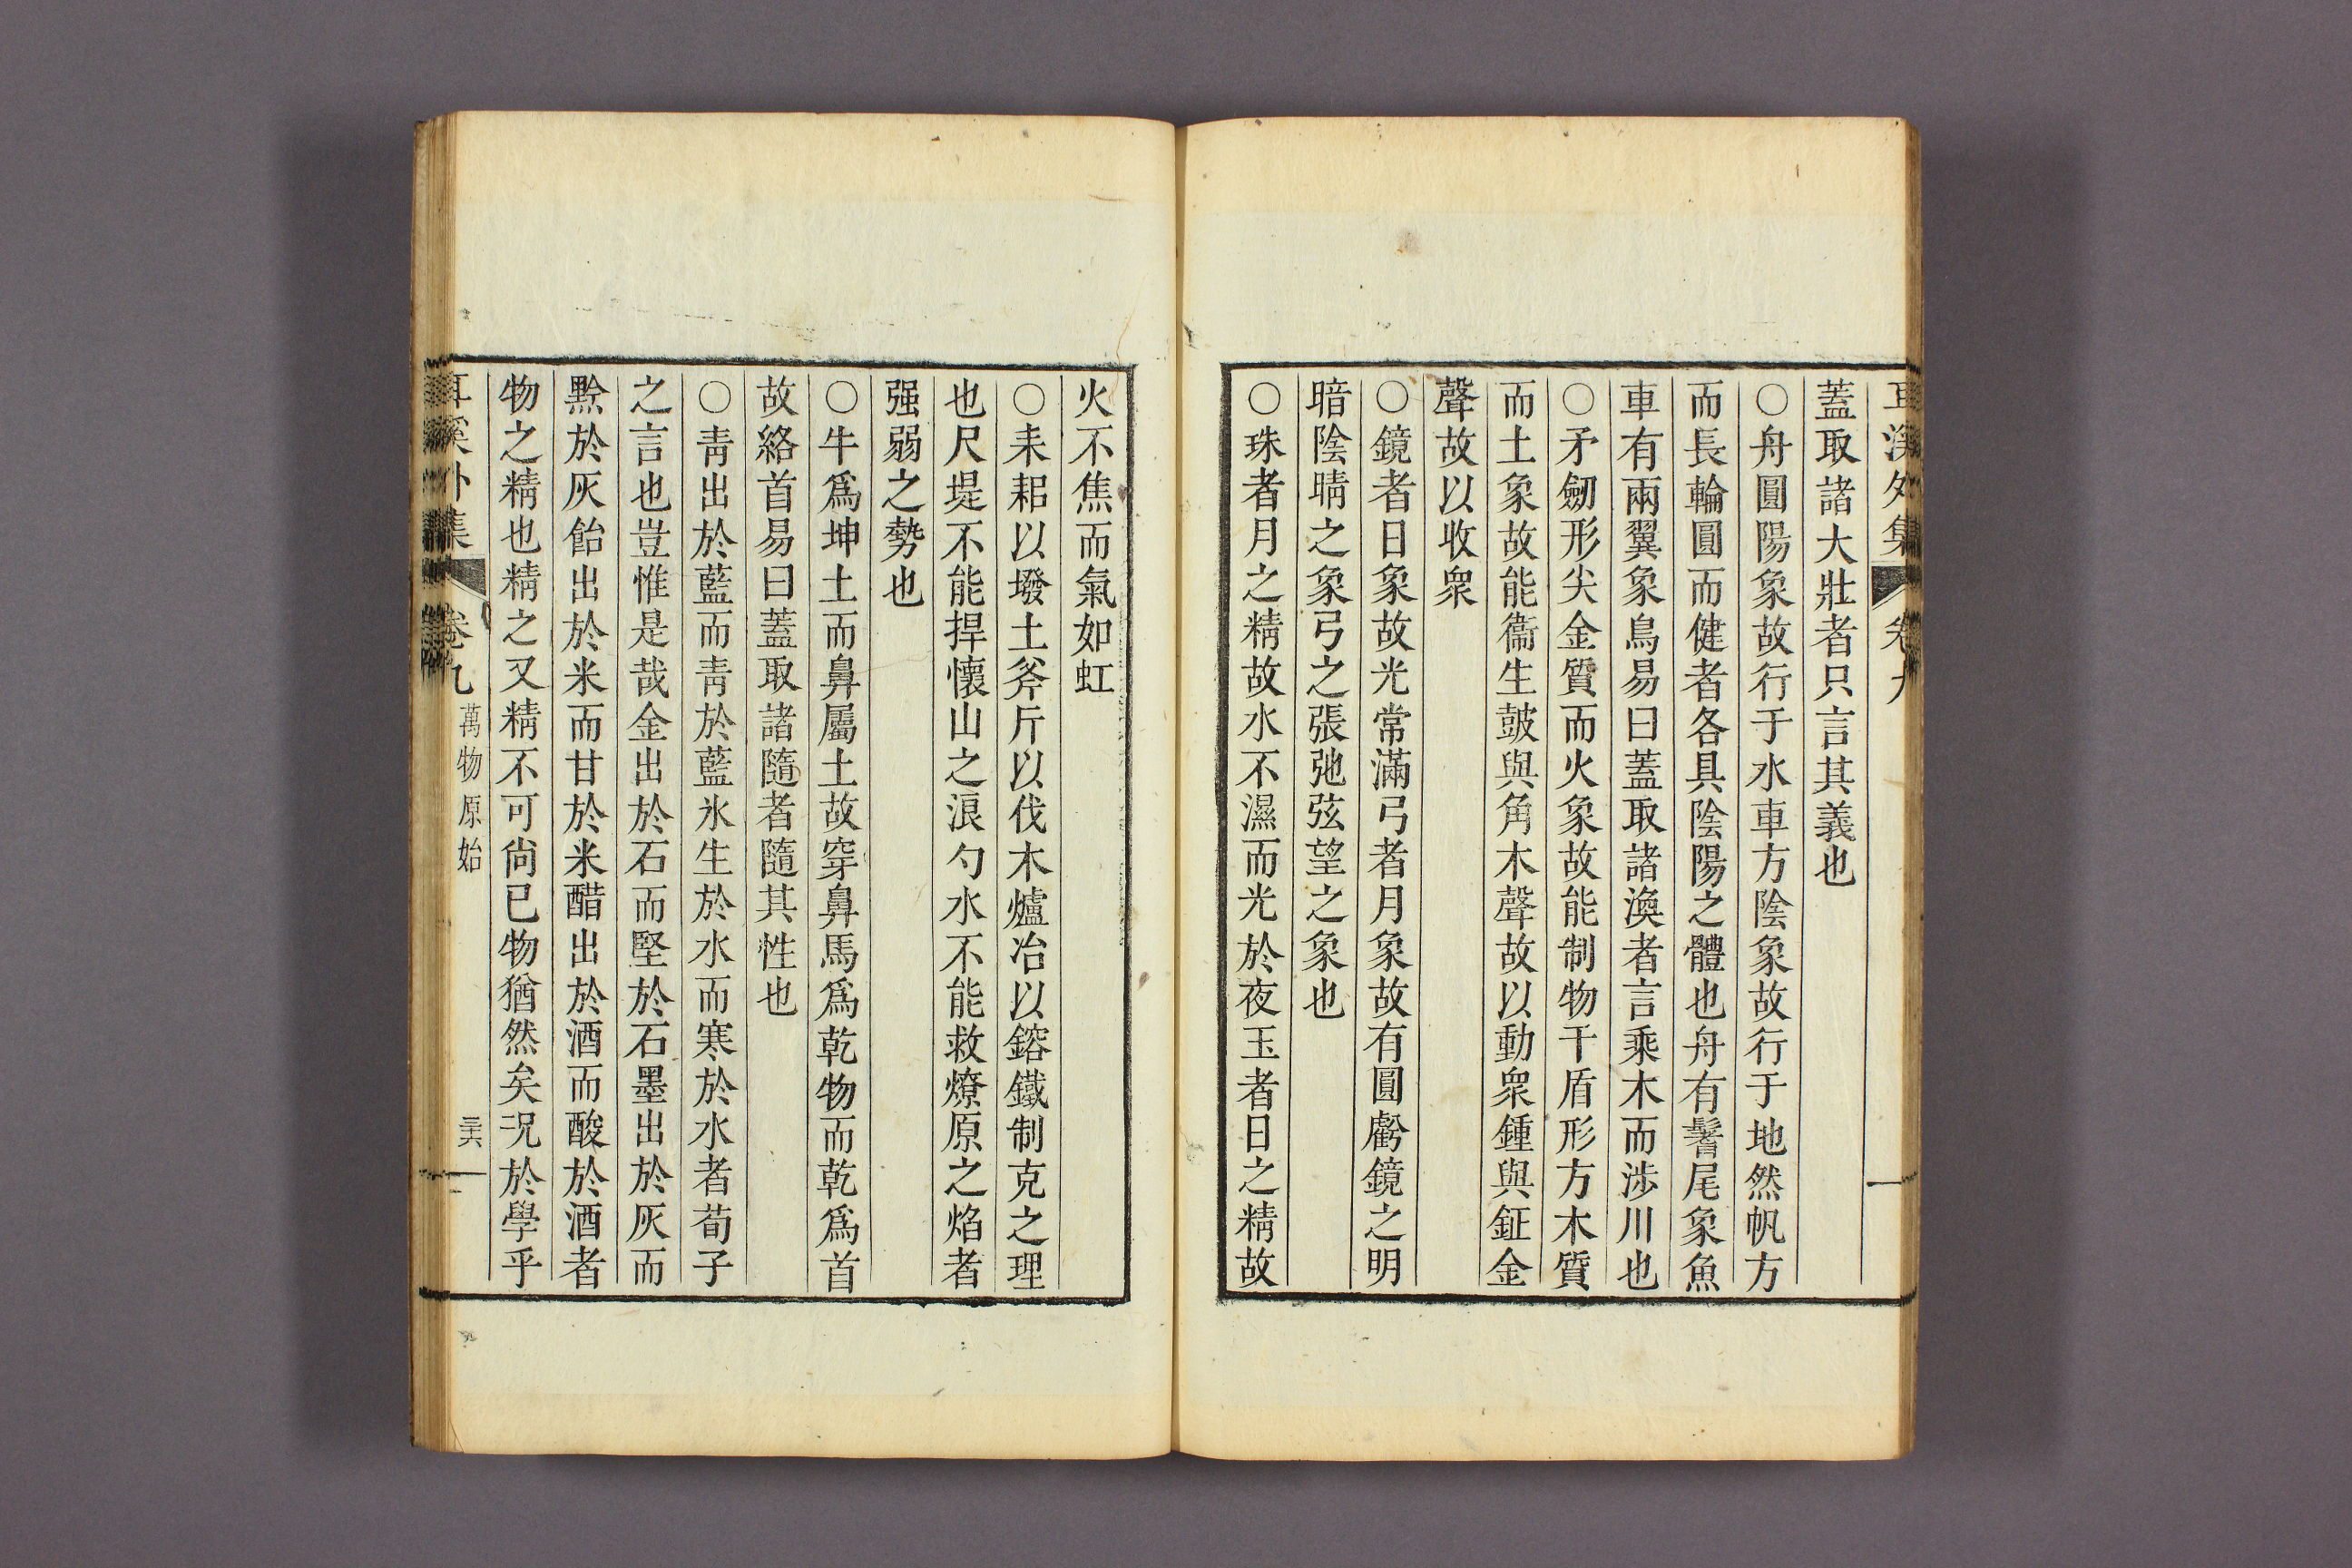 耳溪外集 卷九
蓋取諸大壯者只言其義也
○舟圓陽象故行于水車方陰象故行于地然帆方
而長輪圓而健者各具陰陽之體也舟有鬐尾象魚
車有兩翼象鳥易曰蓋取諸渙者言乘木而涉川也
○矛劒形尖金質而火象故能制物干盾形方木質
而土象故能衞生鼓與角木聲故以動衆鍾與鉦金
聲故以收衆
○鏡者日象故光常滿弓者月象故有圓虧鏡之明
暗陰晴之象弓之張弛弦望之象也
○珠者月之精故水不濕而光於夜玉者日之精故
火不焦而氣如虹
○耒耜以墢土斧斤以伐木爐冶以鎔鐵制克之理
也尺堤不能捍懷山之浪勺水不能救燎原之焰者
强弱之勢也
○牛爲坤土而鼻屬土故穿鼻馬爲乾物而乾爲首
故絡首易曰蓋取諸隨者隨其性也
○靑出於藍而靑於藍氷生於水而寒於水者荀子
之言也豈惟是哉金出於石而堅於石墨出於灰而
黥於灰飴出於米而甘於米醋出於酒而酸於酒者
物之精也精之又精不可尙已物猶然矣况於學乎
耳溪外集 卷九 萬物原始 三六